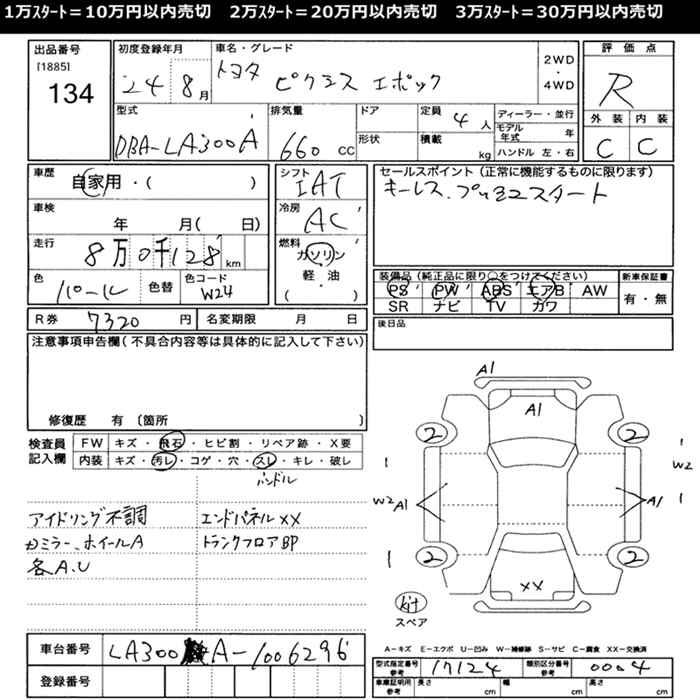 1万スタート=10万円以内売切 2万スタート=20万円以内売切 3万スタート=30万円以内売切
出品番号
[1885]
134
初度登録年月
24 8月
車名・グレード
トヨタ ピクシス エポック
2WD
・
4WD
評価点
R
外装 内装
C C
型式
DBA-LA300A
排気量
660 cc
ドア
形状
定員
4人
積載
kg
ディーラー・並行
モデル年式 年
ハンドル 左・右
車歴
自家用・( )
車検
年 月( 日)
走行
8万0千128km
色
パール
色替
色コード
W24
シフト
IAT
冷房
AC
燃料
ガソリン
軽・油
( )
セールスポイント(正常に機能するものに限ります)
キーレス、プッシュスタート
装備品(純正品に限り○をつけてください)
PS PW ABS エアB AW
SR ナビ TV カワ
新車保証書
有・無
R券 7320円
名変期限 月 日
後日品
注意事項申告欄(不具合内容等は具体的に記入して下さい)
修復歴 有〔箇所 〕
検査員記入欄
FW キズ・飛石・ヒビ割・リペア跡・X要
内装 キズ・汚レ・コゲ・穴・スレ・キレ・破レ
ハンドル
アイドリング不調 エンドパネルXX
ミラー、ホイールA トランクフロアBP
各A.U
A1
A1
2 2
1 1
W2 A1 A1 W2
1 1
2 2
XX
スペア
A-キズ E-エクボ U-凹み W-補修跡 S-サビ C-腐食 XX-交換済
車台番号 LA300A-1006296
登録番号
型式指定番号 参考 17124
類別区分番号 参考 0004
車庫証明用 参考 長さ cm 幅 cm 高さ cm